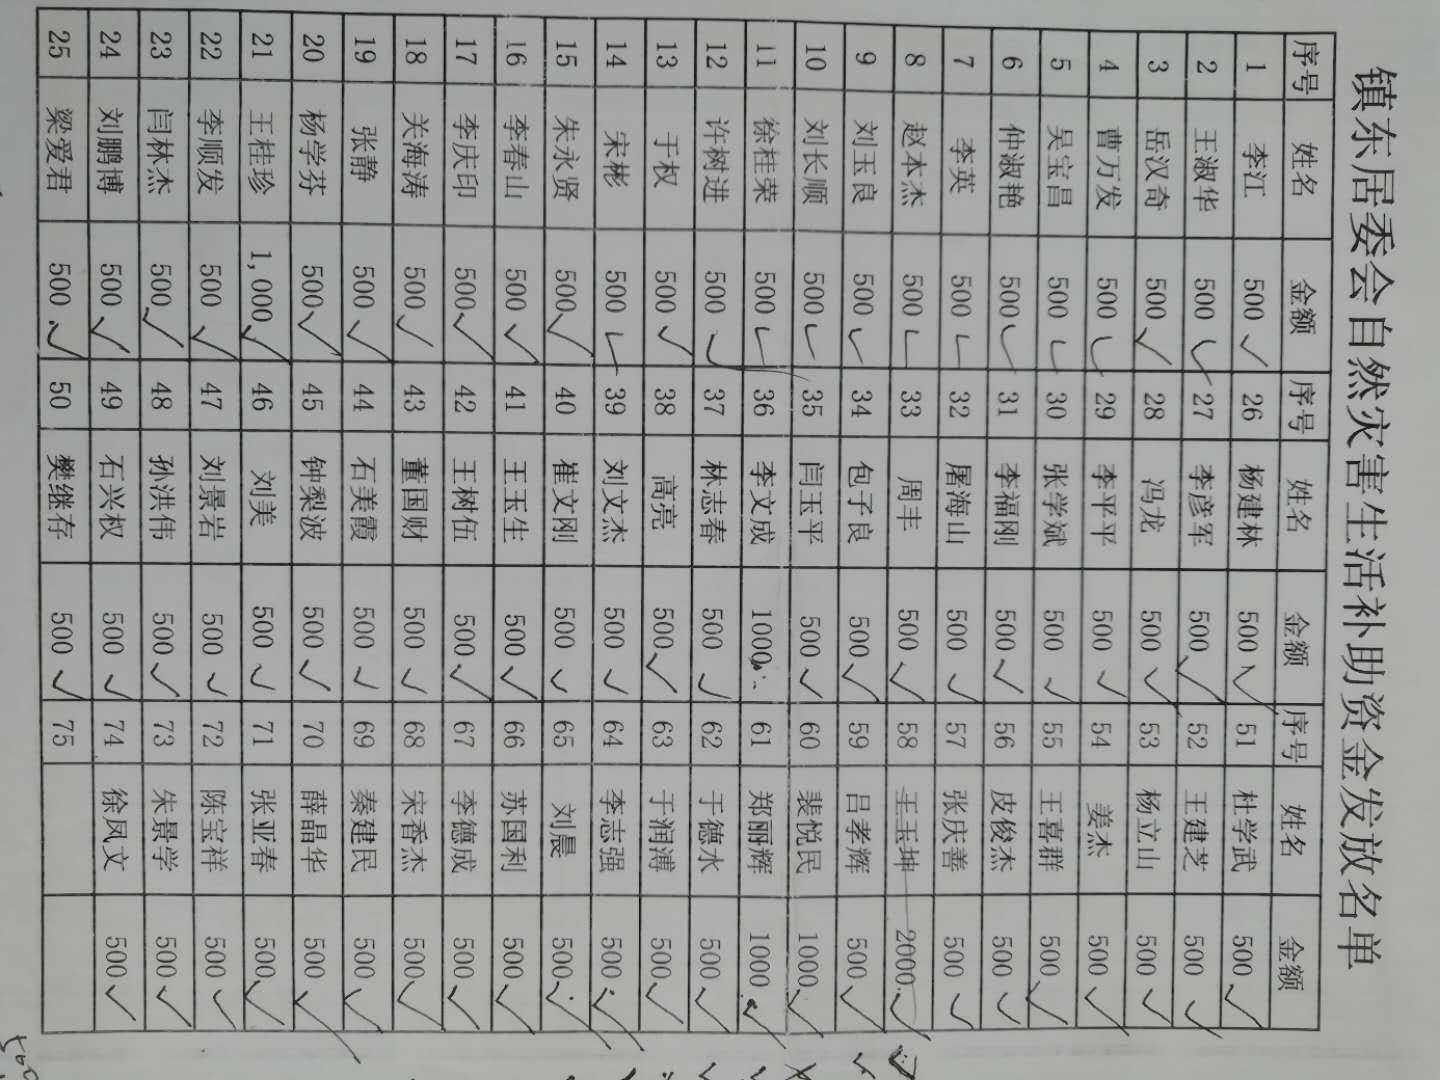 镇东居委会自然灾害生活补助资金发放名单
序号 姓名 金额 序号 姓名 金额 序号 姓名 金额
1 李江 500 ✓ 26 杨建林 500 ✓ 51 杜学武 500 ✓
2 王淑华 500 ✓ 27 李彦军 500 ✓ 52 王建芝 500 ✓
3 岳汉奇 500 ✓ 28 冯龙 500 ✓ 53 杨立山 500 ✓
4 曹万发 500 ✓ 29 李平平 500 ✓ 54 姜杰 500 ✓
5 吴宝昌 500 ✓ 30 张学斌 500 ✓ 55 王喜群 500 ✓
6 仲淑艳 500 ✓ 31 李福刚 500 ✓ 56 皮俊杰 500 ✓
7 李英 500 ✓ 32 屠海山 500 ✓ 57 张庆善 500 ✓
8 赵本杰 500 ✓ 33 周丰 500 ✓ 58 王玉坤 2000 ✓
9 刘玉良 500 ✓ 34 包子良 500 ✓ 59 吕孝辉 500 ✓
10 刘长顺 500 ✓ 35 闫玉平 500 ✓ 60 裴悦民 1000 ✓
11 徐桂荣 500 ✓ 36 李文成 1000 61 郑丽辉 1000 ✓
12 许树进 500 ✓ 37 林志春 500 ✓ 62 于德水 500 ✓
13 于权 500 ✓ 38 高亮 500 ✓ 63 于润溥 500 ✓
14 宋彬 500 ✓ 39 刘文杰 500 ✓ 64 李志强 500 ✓
15 朱永贤 500 ✓ 40 崔文刚 500 ✓ 65 刘晨 500 ✓
16 李春山 500 ✓ 41 王玉生 500 ✓ 66 苏国利 500 ✓
17 李庆印 500 ✓ 42 王树伍 500 ✓ 67 李德成 500 ✓
18 关海涛 500 ✓ 43 董国财 500 ✓ 68 宋香杰 500 ✓
19 张静 500 ✓ 44 石美霞 500 ✓ 69 秦建民 500 ✓
20 杨学芬 500 ✓ 45 钟梨波 500 ✓ 70 薛晶华 500 ✓
21 王桂珍 1,000 ✓ 46 刘美 500 ✓ 71 张亚春 500 ✓
22 李顺发 500 ✓ 47 刘景岩 500 ✓ 72 陈宝祥 500 ✓
23 闫林杰 500 ✓ 48 孙洪伟 500 ✓ 73 朱景学 500 ✓
24 刘鹏博 500 ✓ 49 石兴权 500 ✓ 74 徐凤文 500 ✓
25 梁爱君 500 ✓ 50 樊继存 500 ✓ 75